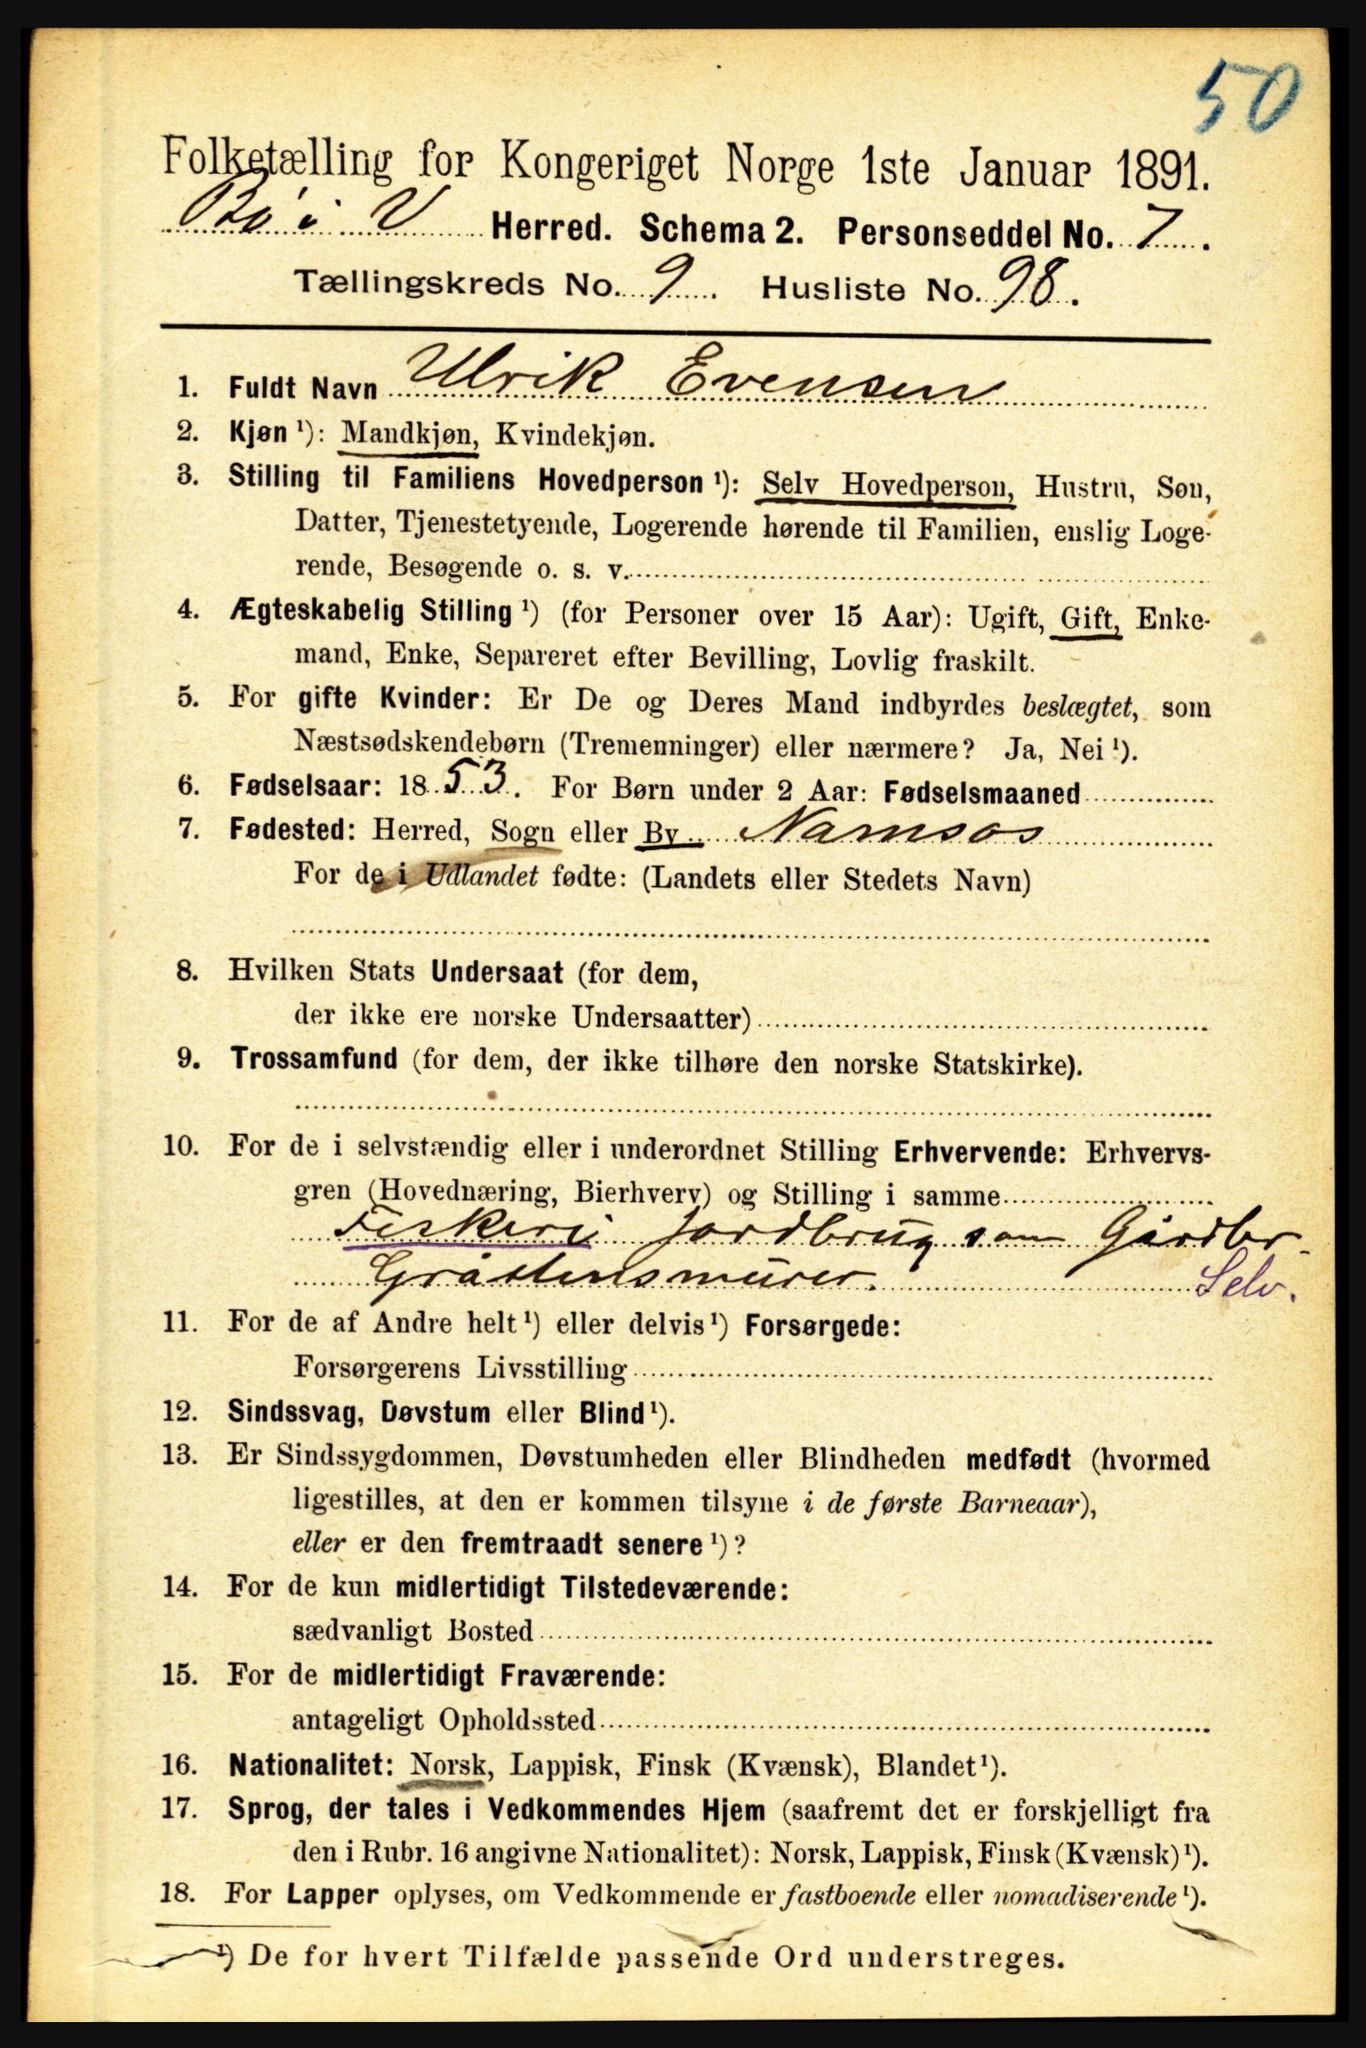 50
Folketælling for Kongeriget Norge 1ste Januar 1891.
Bø i V Herred. Schema 2. Personseddel No. 7.
Tællingskreds No. 9. Husliste No. 98.
1. Fuldt Navn Ulrik Evensen
2. Kjøn ¹): Mandkjøn, Kvindekjøn.
3. Stilling til Familiens Hovedperson ¹): Selv Hovedperson, Hustru, Søn,
Datter, Tjenestetyende, Logerende hørende til Familien, enslig Loge-
rende, Besøgende o. s. v.
4. Ægteskabelig Stilling ¹) (for Personer over 15 Aar): Ugift, Gift, Enke-
mand, Enke, Separeret efter Bevilling, Lovlig fraskilt.
5. For gifte Kvinder: Er De og Deres Mand indbyrdes beslægtet, som
Næstsødskendebørn (Tremenninger) eller nærmere? Ja, Nei ¹).
6. Fødselsaar: 1853. For Børn under 2 Aar: Fødselsmaaned
7. Fødested: Herred, Sogn eller By Namsos
For de i Udlandet fødte: (Landets eller Stedets Navn)
8. Hvilken Stats Undersaat (for dem,
der ikke ere norske Undersaatter)
9. Trossamfund (for dem, der ikke tilhøre den norske Statskirke).
10. For de i selvstændig eller i underordnet Stilling Erhvervende: Erhvervs-
gren (Hovednæring, Bierhverv) og Stilling i samme
Fiskeri jordbrug som Gårdbr
Gråstensmurer. Selv.
11. For de af Andre helt ¹) eller delvis ¹) Forsørgede:
Forsørgerens Livsstilling
12. Sindssvag, Døvstum eller Blind ¹).
13. Er Sindssygdommen, Døvstumheden eller Blindheden medfødt (hvormed
ligestilles, at den er kommen tilsyne i de første Barneaar),
eller er den fremtraadt senere ¹)?
14. For de kun midlertidigt Tilstedeværende:
sædvanligt Bosted
15. For de midlertidigt Fraværende:
antageligt Opholdssted
16. Nationalitet: Norsk, Lappisk, Finsk (Kvænsk), Blandet ¹).
17. Sprog, der tales i Vedkommendes Hjem (saafremt det er forskjelligt fra
den i Rubr. 16 angivne Nationalitet): Norsk, Lappisk, Finsk (Kvænsk) ¹).
18. For Lapper oplyses, om Vedkommende er fastboende eller nomadiserende ¹).
¹) De for hvert Tilfælde passende Ord understreges.